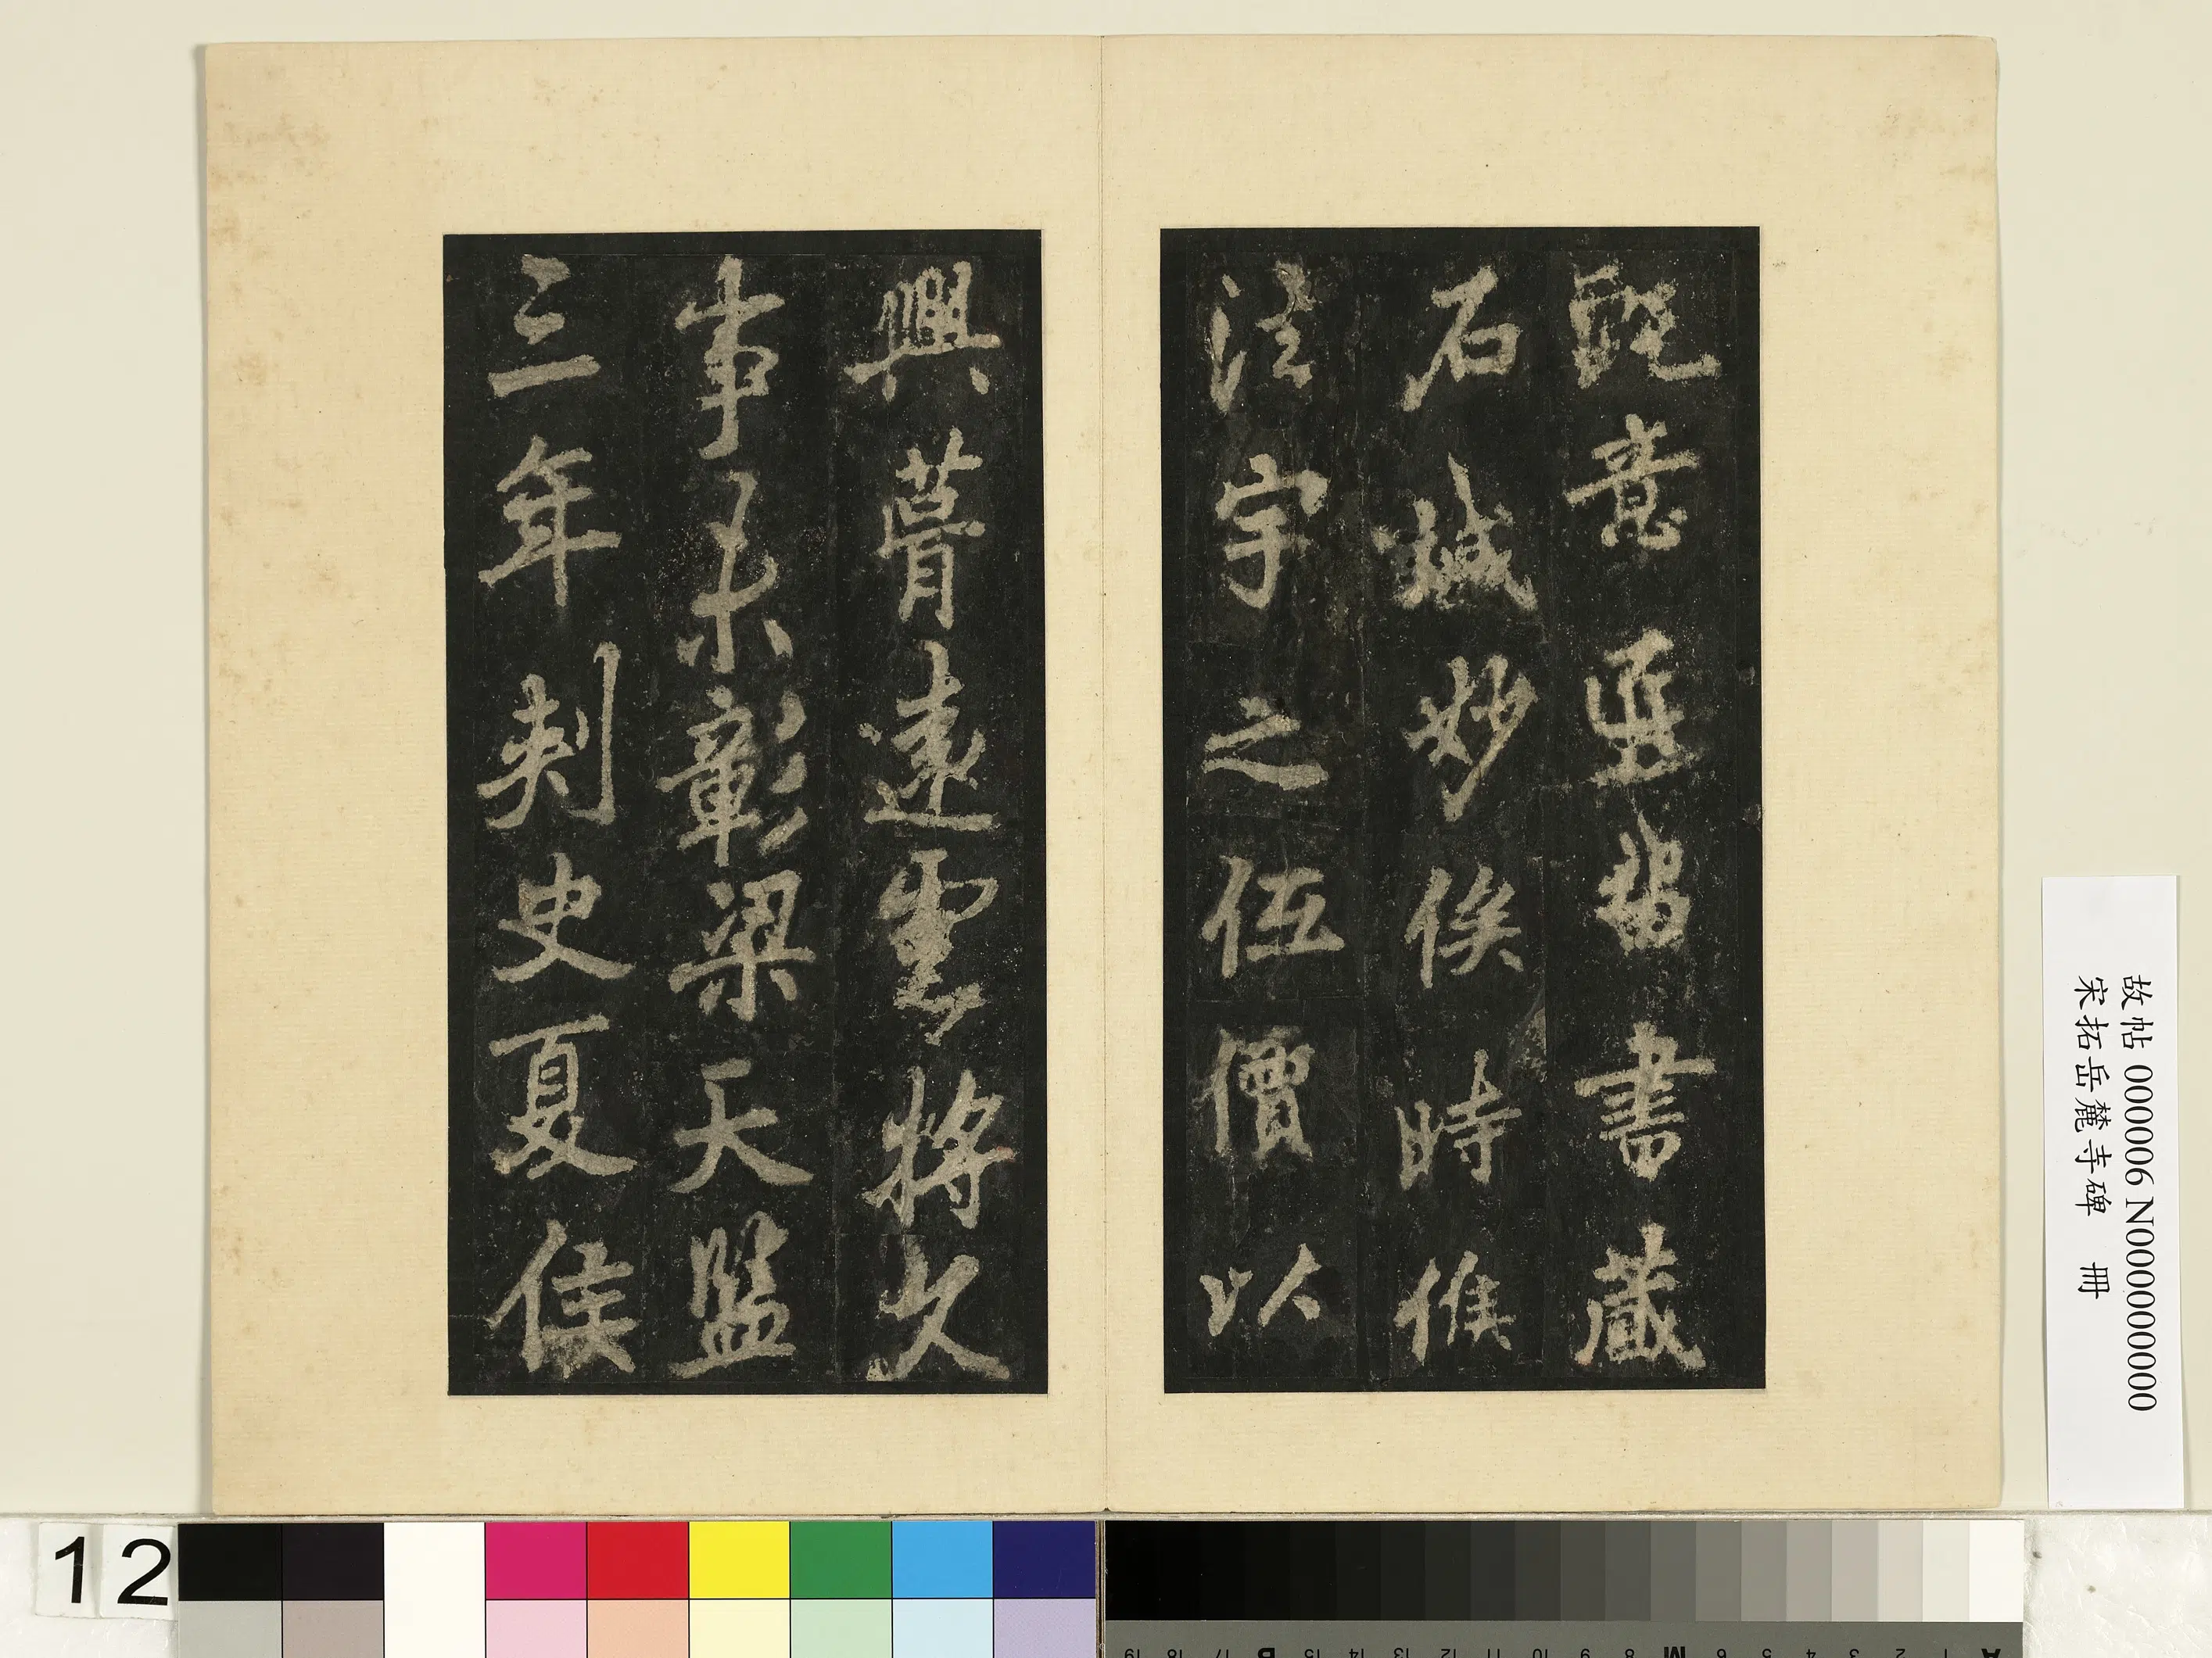 既意垂留書藏
石緘妙俟時候
法宇之伍價以
興瞢遠雲將久
事彰梁天監
三年刺史夏侯
故帖 000006 N000000000
宋拓岳麓寺碑 冊
12